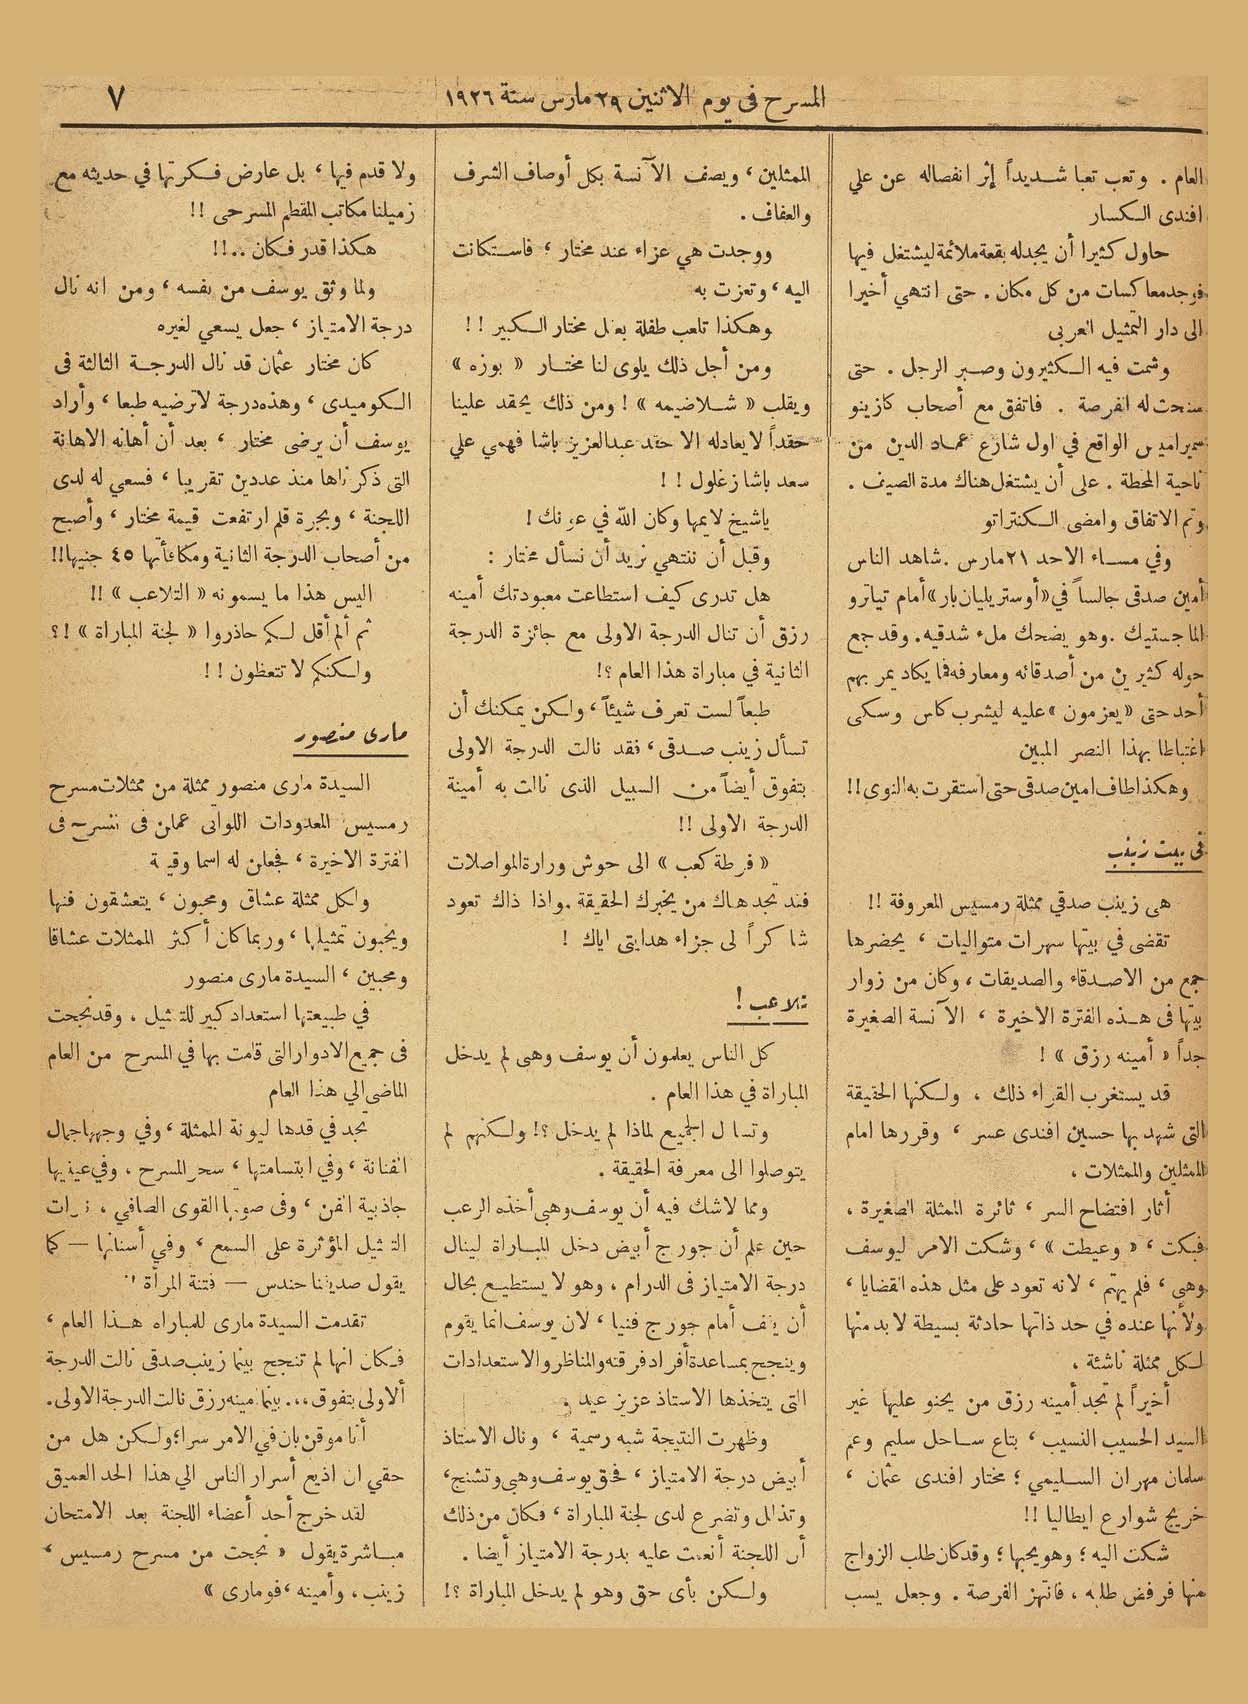 المسرح فى يوم الاثنين ٢٩ مارس سنة ١٩٢٦
٧
العام . وتعب تعبا شديداً إثر انفصاله عن علي
افندى الكسار
حاول كثيرا أن يجد له بقعة ملائمة ليشتغل فيها
فوجد معاكسات من كل مكان . حتى انتهي أخيرا
الى دار التمثيل العربى
وشمت فيه الكثيرون وصبر الرجل . حتى
سنحت له الفرصة . فاتفق مع أصحاب كازينو
سميراميس الواقع في اول شارع عماد الدين من
ناحية المحطة . على أن يشتغل هناك مدة الصيف .
وتم الاتفاق وامضى الكنتراتو
وفي مساء الاحد ٢١ مارس . شاهد الناس
أمين صدقى جالساً في «أوستريليان بار» أمام تياترو
الماجستيك . وهو يضحك ملء شدقيه . وقد جمع
حوله كثيرين من أصدقائه ومعارفه فما يكاد يمر بهم
أحد حتى «يعزمون» عليه ليشرب كاس وسكى
اغتباطا بهذا النصر المبين
وهكذا طاف امين صدقى حتى استقرت به النوى !!
فى بيت زينب
هى زينب صدقي ممثلة رمسيس المعروفة !!
تقضى في بيتها سهرات متواليات ، يحضرها
جمع من الاصدقاء والصديقات ، وكان من زوار
بيتها فى هذه الفترة الاخيرة ، الآنسة الصغيرة
جداً « أمينه رزق » !
قد يستغرب القراء ذلك ، ولكنها الحقيقة
التى شهد بها حسين افندى عسر ، وقررها امام
الممثلين والممثلات ،
أثار افتضاح السر ، ثائرة الممثلة الصغيرة ،
فبكت ، « وعيطت » ، وشكت الامر ليوسف
وهبى ، فلم يهتم ، لانه تعود على مثل هذه القضايا ،
ولأنها عنده في حد ذاتها حادثة بسيطة لا بد منها
لكل ممثلة ناشئة ،
أخيراً لم تجد أمينه رزق من يحنو عليها غير
السيد الحسيب النسيب ، بتاع ساحل سليم وعم
سلمان مهران السليمي ؛ مختار افندى عثمان ،
خريج شوارع ايطاليا !!
شكت اليه ؛ وهو يحبها ؛ وقد كان طلب الزواج
منها فرفض طلبه ، فانتهز الفرصة . وجعل يسب
الممثلين ، ويصف الآنسة بكل أوصاف الشرف
والعفاف .
ووجدت هي عزاء عند مختار ، فاستكانت
اليه ، وتعزت به
وهكذا تلعب طفلة بعقل مختار الكبير !!
ومن أجل ذلك يلوى لنا مختار « بوزه »
ويقلب « شلاضيمه » ! ومن ذلك يحقد علينا
حقداً لا يعادله الا حقد عبد العزيز باشا فهمي علي
سعد باشا زغلول !!
ياشيخ لايمها وكان الله في عونك !
وقبل أن ننتهي نريد أن نسأل مختار :
هل تدرى كيف استطاعت معبودتك أمينه
رزق أن تنال الدرجة الاولى مع جائزة الدرجة
الثانية في مباراة هذا العام ؟!
طبعاً لست تعرف شيئاً ، ولكن يمكنك أن
تسأل زينب صدقى ، فقد نالت الدرجة الاولى
بتفوق أيضاً من السبيل الذى نالت به أمينة
الدرجة الاولى !!
« فرطة كعب » الى حوش وزارة المواصلات
فقد تجد هناك من يخبرك الحقيقة . واذا ذاك تعود
شاكراً لى جزاء هدايتى اياك !
تلاعب !
كل الناس يعلمون أن يوسف وهبى لم يدخل
المباراة في هذا العام .
وتساءل الجميع لماذا لم يدخل ؟! ولكنهم لم
يتوصلوا الى معرفة الحقيقة .
ومما لاشك فيه أن يوسف وهبي أخذه الرعب
حين علم أن جورج أبيض دخل المباراة لينال
درجة الامتياز فى الدرام ، وهو لا يستطيع بحال
أن يقف أمام جورج فنيا ، لان يوسف انما يقوم
وينجح بمساعدة أفراد فرقته والمناظر والاستعدادات
التى يتخذها الاستاذ عزيز عيد .
وظهرت النتيجة شبه رسمية ، ونال الاستاذ
أبيض درجة الامتياز ، فحق يوسف وهبي وتشنج ،
وتذلل وتضرع لدى لجنة المباراة ، فكان من ذلك
أن اللجنة أنعمت عليه بدرجة الامتياز أيضا .
ولكن بأى حق وهو لم يدخل المباراة ؟!
ولا قدم فيها ، بل عارض فكرتها في حديثه مع
زميلنا مكاتب المقطم المسرحى !!
هكذا قدر فكان ..!!
ولما وثق يوسف من نفسه ، ومن انه نال
درجة الامتياز ، جعل يسعي لغيره
كان مختار عثمان قد نال الدرجة الثالثة فى
الكوميدى ، وهذه درجة لا ترضيه طبعا ، وأراد
يوسف أن يرضى مختار ، بعد أن أهانه الاهانة
التى ذكرناها منذ عددين تقريبا ، فسعي له لدى
اللجنة ، وبجرة قلم ارتفعت قيمة مختار ، وأصبح
من أصحاب الدرجة الثانية ومكافأتها ٤٥ جنيها !!
اليس هذا ما يسمونه « التلاعب » !!
ثم ألم أقل لكم حاذروا « لجنة المباراة » !؟
ولكنكم لا تتعظون !!
مارى منصور
السيدة مارى منصور ممثلة من ممثلات مسرح
رمسيس المعدودات اللواتى عملن فى المسرح فى
الفترة الاخيرة ، فجعلن له اسما وقيمة
ولكل ممثلة عشاق ومحبون ، يتعشقون فنها
ويحبون تمثيلها ، وربما كان أكثر الممثلات عشاقا
ومحبين ، السيدة مارى منصور
في طبيعتها استعداد كبير للتمثيل ، وقد نجحت
فى جميع الادوار التى قامت بها في المسرح من العام
الماضى الي هذا العام
تجد في قدها ليونة الممثلة ، وفي وجهها جمال
الفنانة ، وفي ابتسامتها ، سحر المسرح ، وفي عينيها
جاذبية الفن ، وفى صوتها القوى الصافي ، نبرات
التمثيل المؤثرة على السمع ، وفي أسنانها — كما
يقول صديقنا حندس — فتنة المرأة !
تقدمت السيدة مارى للمباراه هذا العام ،
فكان انها لم تنجح بينما زينب صدقى نالت الدرجة
ألاولى بتفوق ... بينما مينه رزق نالت الدرجة الاولى .
أنا موقن بان في الامر سرا ؛ ولكن هل من
حقي ان اذيع أسرار الناس الي هذا الحد العميق
لقد خرج أحد أعضاء اللجنة بعد الامتحان
مباشرة يقول « نجحت من مسرح رمسيس ،
زينب ، وأمينه ، فومارى »